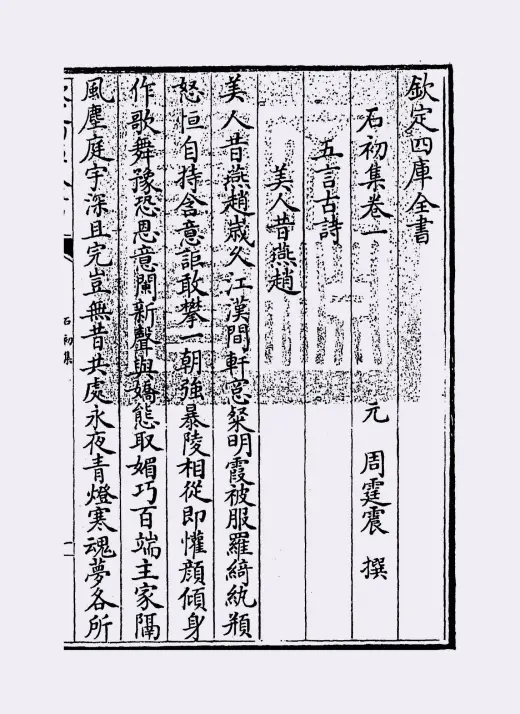 欽定四庫全書
石初集卷一
元 周霆震 撰
五言古詩
美人昔燕趙
美人昔燕趙歲久江漢間軒窓粲明霞被服羅綺紈頩
怒恒自持含意詎敢攀一朝強暴陵相從即懽顔傾身
作歌舞豫恐恩意闌新聲與嬌態取媚巧百端主家隔
風塵庭宇深且完豈無昔共處永夜青燈寒魂夢各所
石初集
一